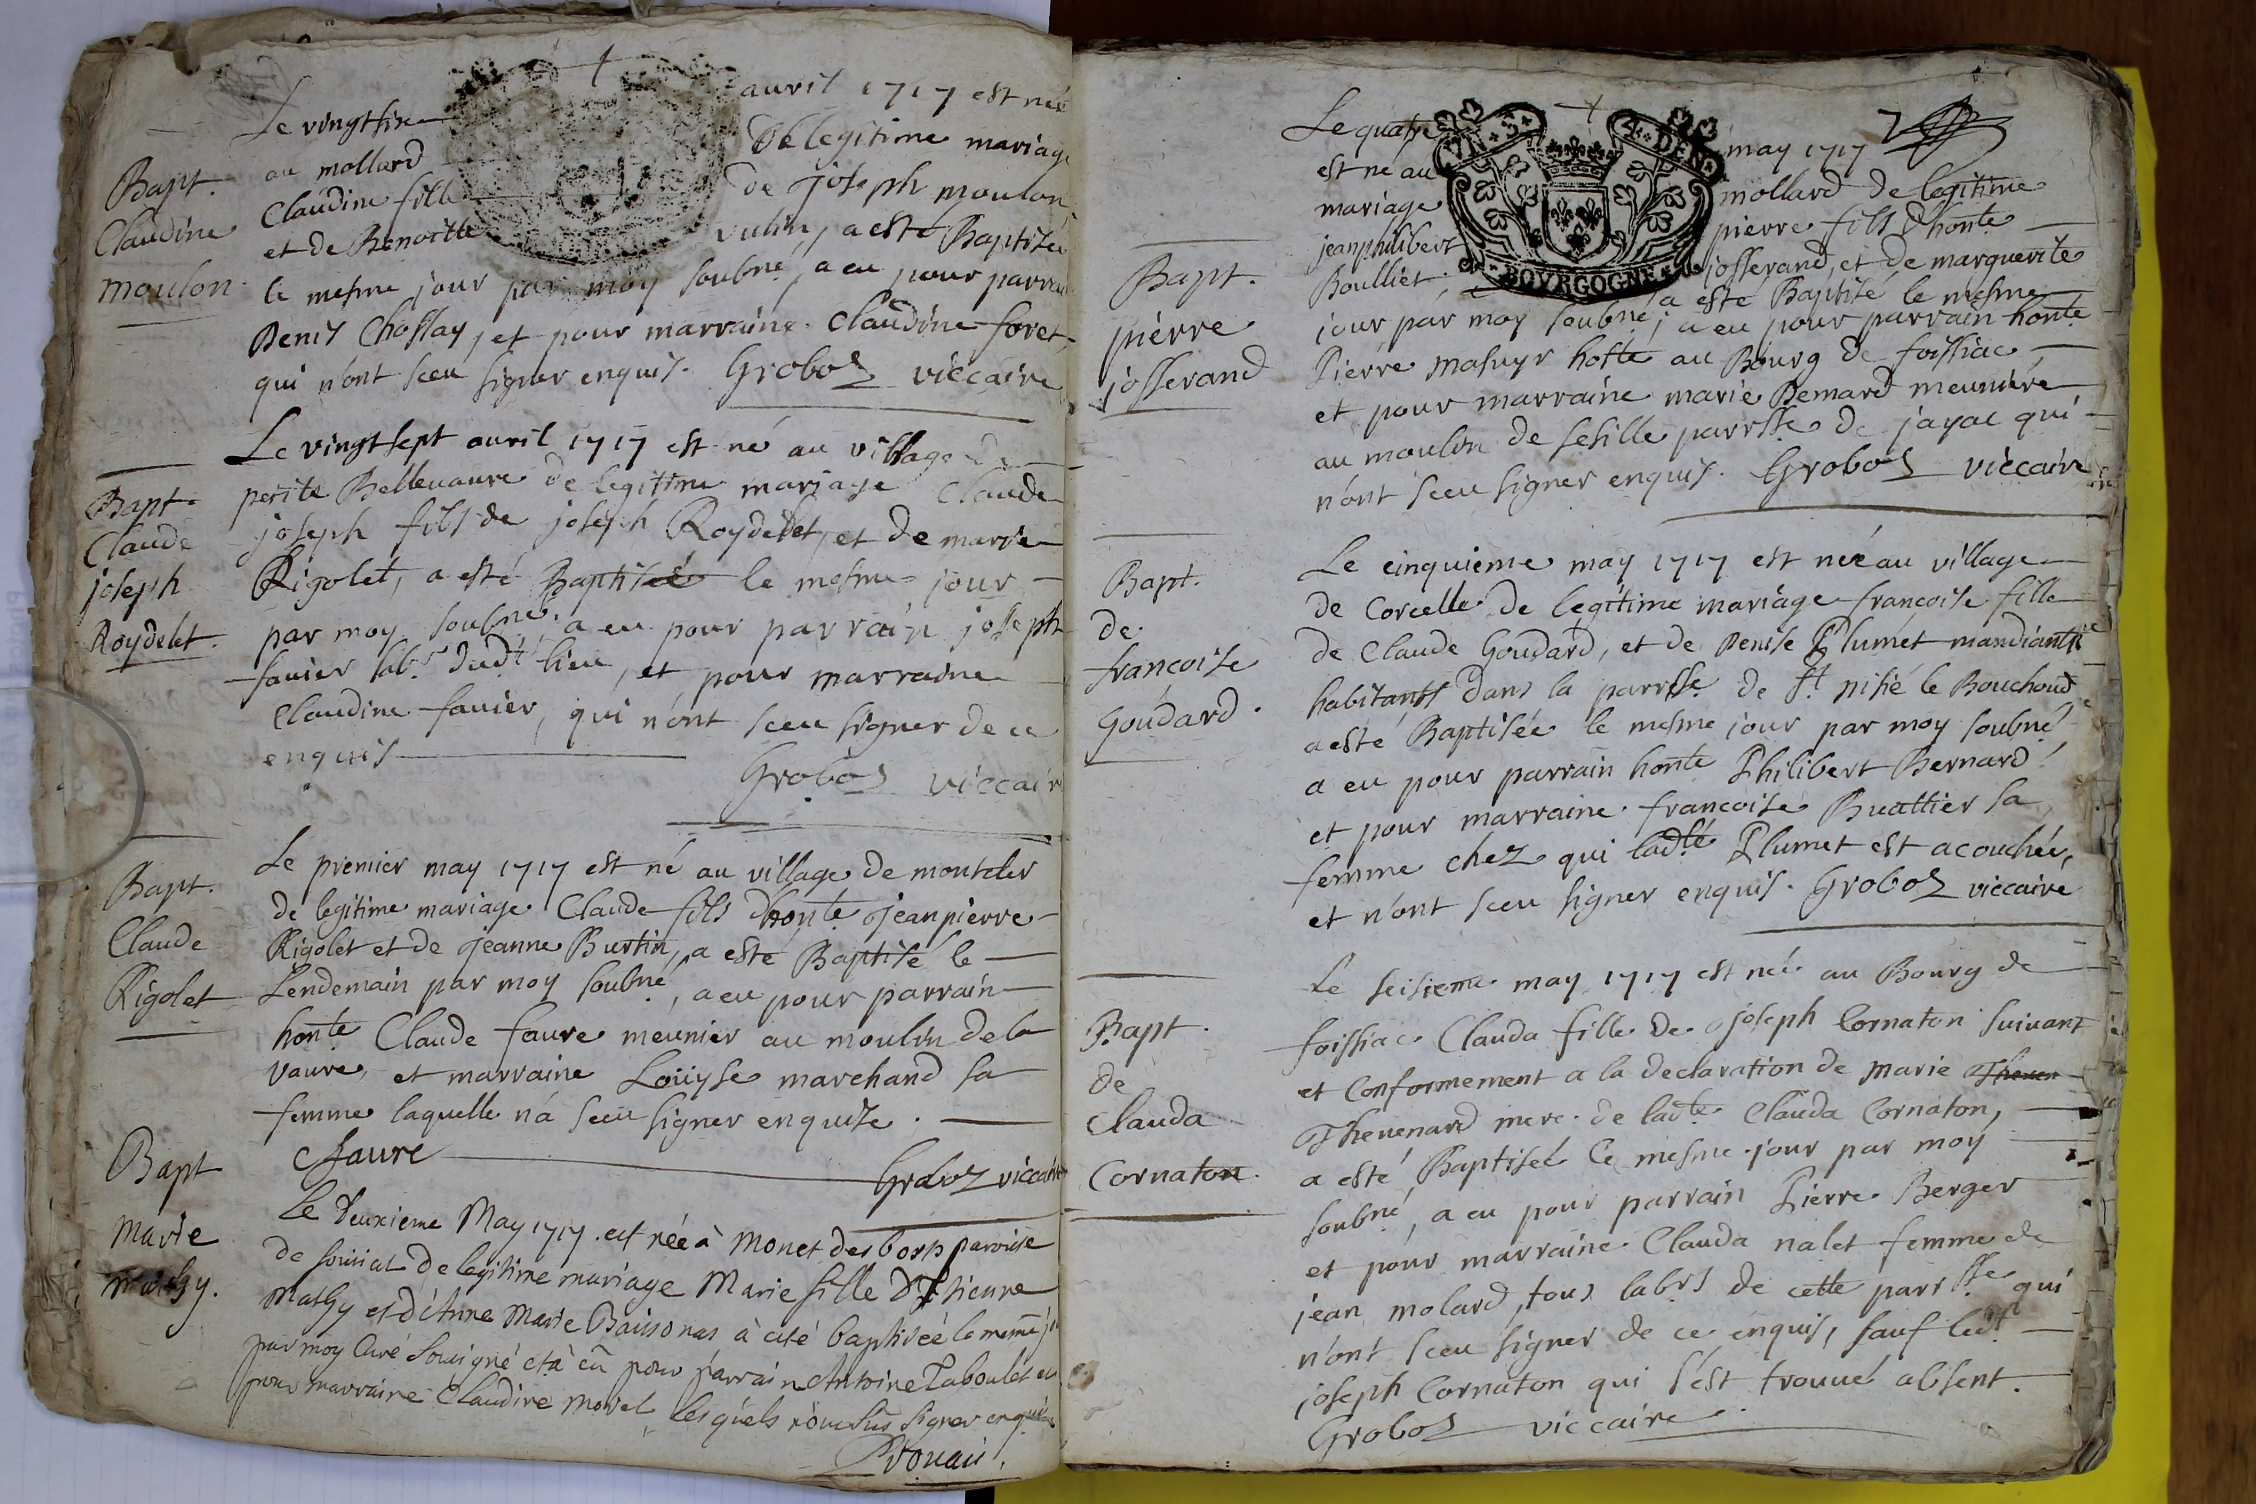 Bapt.
Claudine
moulon
Le vingtsix avril 1717 est née
au mollard De legitime mariage
Claudine fille de joseph moulon,
et de Benoitte vulin, a esté Baptisée
le mesme jour par moy soubné, a eu pour parrain
Denis Chossay, et pour marraine Claudine foret,
qui n'ont sceu signer enquis. Groboz viccaire
Bapt.
Claude
joseph
Roydelet.
Le vingtsept avril 1717 est né au village de
petite Bellevavre de legitime mariage Claude
joseph fils de joseph Roydelet, et de marie
Rigolet, a esté Baptisé le mesme jour
par moy soubné, a eu pour parrain joseph
favier labr. dudt lieu, et pour marraine
Claudine favier, qui n'ont sceu signer de ce
enquis
Groboz viccaire
Bapt.
Claude
Rigolet
Le premier may 1717 est né au village de montcler
de legitime mariage Claude fils d'honte jeanpierre
Rigolet et de jeanne Burtin, a esté Baptisé le
Lendemain par moy soubné, a eu pour parrain
honte Claude faure meunier au moulin de la
vavre, et marraine Loüyse marchand sa
femme laquelle n'a sceu signer enquise.
CFaure
Groboz viccaire
Bapt
Marie
mathy.
Le Deuxieme May 1717. est née à Monet des bois paroisse
de de legitime mariage Marie fille D'Etienne
Mathy et d'Anne Marie à été baptisée le meme jr
par moy Curé Souigné et à eu pour parrain Antoine Taboulet et
pour marraine Claudine Morel, lesquels n'ont sçu signer enquis
7
VI S. 4. DEN.
BOVRGOGNE
Bapt.
pierre
josserand
Le quatre may 1717
est né au mollard de legitime
mariage pierre fils d'honte
jeanphilibert josserand, et de marguerite
Boulliet, a esté Baptisé le mesme
jour par moy soubné, a eu pour parrain honte
Pierre masuyr hoste au Bourg de foissiac
et pour marraine marie Bernard meunière
au moulin de sesille parrsse de jayac qui
n'ont sceu signer enquis. Groboz viccaire
Bapt.
de
francoise
Goudard.
Le cinquieme may 1717 est née au village
de Corcelle de legitime mariage francoise fille
de Claude Goudard, et de Denise Plumet mandiants
habitants dans la parrsse de St nisié le Bouchoud
a esté Baptisée le mesme jour par moy soubné
a eu pour parrain honte Philibert Bernard
et pour marraine francoise Buattier sa
femme chez qui ladte Plumet est acouchée,
et n'ont sceu signer enquis. Groboz viccaire
Bapt.
De
Clauda
Cornaton.
Le seisieme may 1717 est née au Bourg de
foissiac Clauda fille de joseph Cornaton suivant
et Conformement a la declaration de marie Theven
Thevenard mere de ladte Clauda Cornaton,
a esté Baptisée le mesme jour par moy
soubné, a eu pour parrain Pierre Berger
et pour marraine Clauda nalet femme de
jean molard, tous labrs de cette parrsse qui
n'ont sceu signer de ce enquis, sauf ledt
joseph Cornaton qui s'est trouvé absent.
Groboz viccaire